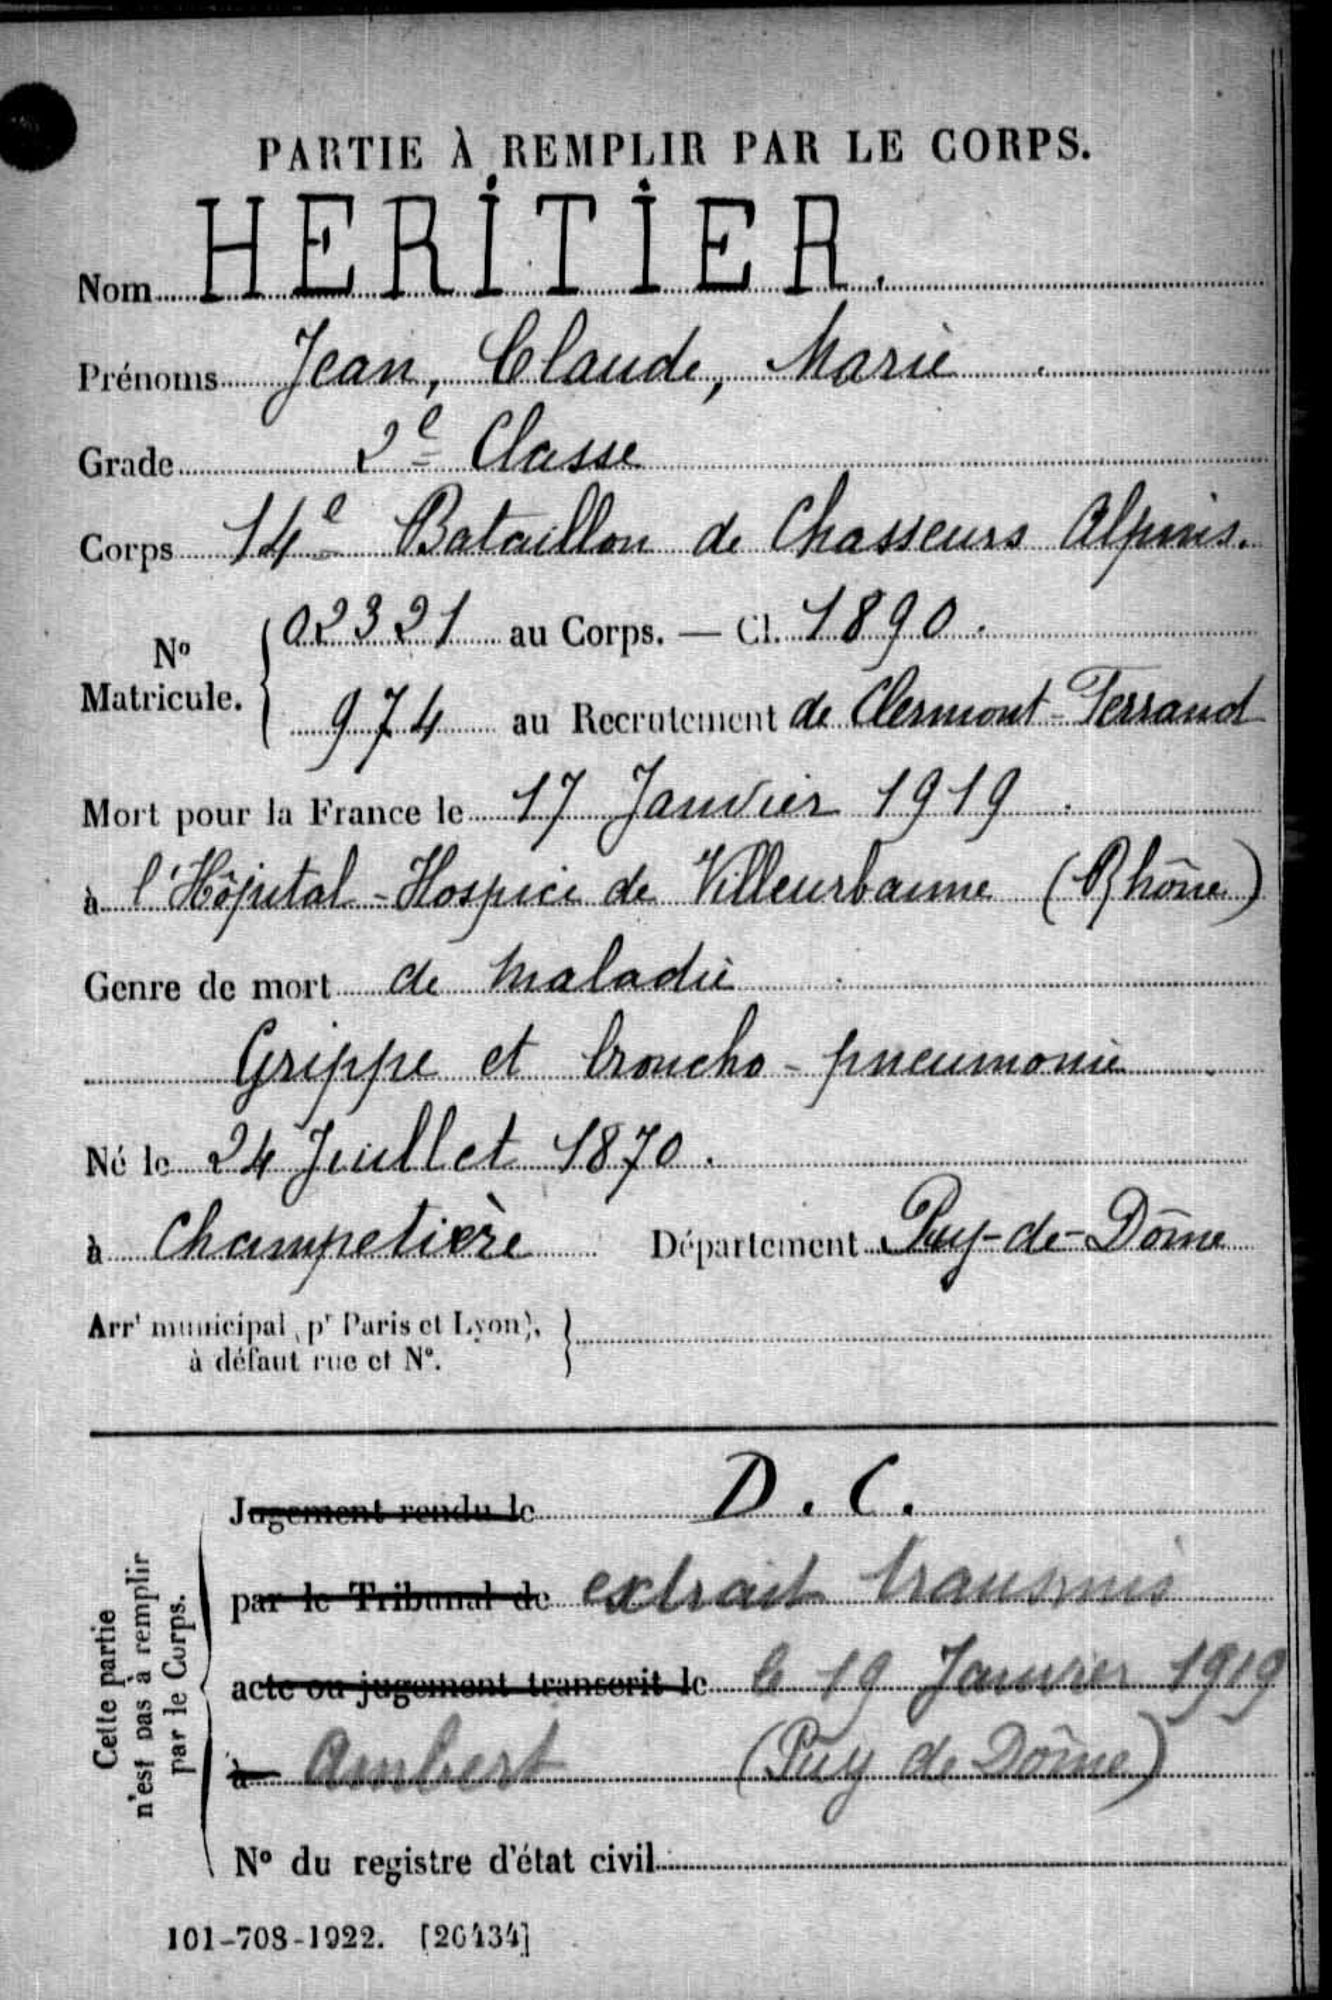 PARTIE À REMPLIR PAR LE CORPS.
Nom HERITIER.
Prénoms Jean, Claude, Marie
Grade 2e Classe
Corps 14e Bataillon de Chasseurs Alpins.
No Matricule. { 02321 au Corps. — Cl. 1890.
974 au Recrutement de Clermont-Ferrand
Mort pour la France le 17 Janvier 1919.
à l'Hôpital-Hospice de Villeurbanne (Rhône)
Genre de mort de maladie
Grippe et broncho-pneumonie
Né le 24 Juillet 1870.
à Champetière Département Puy-de-Dôme
Arrt municipal (pr Paris et Lyon), }
à défaut rue et No.
Jugement rendu le D. C.
par le Tribunal de extrait transmis
acte ou jugement transcrit le le 19 Janvier 1919
à Ambert (Puy de Dôme)
No du registre d'état civil
Cette partie
n'est pas à remplir
par le Corps.
101-708-1922. [26434]